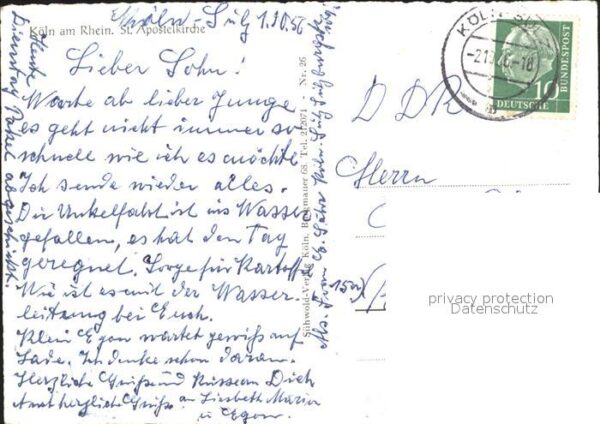 Köln-Sülz 1.10.56
Köln am Rhein. St. Apostelkirche
Lieber Sohn!
Warte ab lieber Junge
es geht nicht immer so
schnell wie ich es möchte
Ich sende wieder alles.
Die Unkelfahrt ist ins Wasser
gefallen, es hat den Tag
geregnet. Sorge für Kartoffel
Wie ist es mit der Wasser-
leitung bei Euch.
Klein Egon wartet gewiß auf
Lade. Ich denke schon daran.
Herzliche Grüße und Küsse an Dich
herzliche Grüße an Liesbeth Maria
u Egon.
Heute
Dienstag Paket abgeschickt.
Sühwold-Verlag Köln, Burgmauer 68, Tel. 212071 - Nr. 26
Abs. Frau Köln-Sülz Sülzburgstr
DDR
Herrn
15a
KÖLN-SÜ
-2.10.56-18
DEUTSCHE
BUNDESPOST
10
privacy protection
Datenschutz